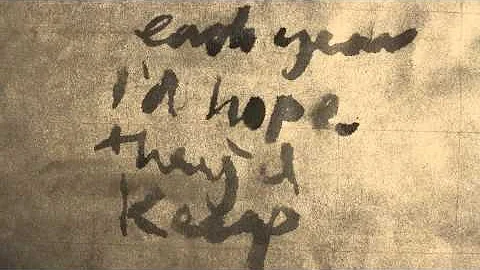 each year
I'd hope
they'd
Keep